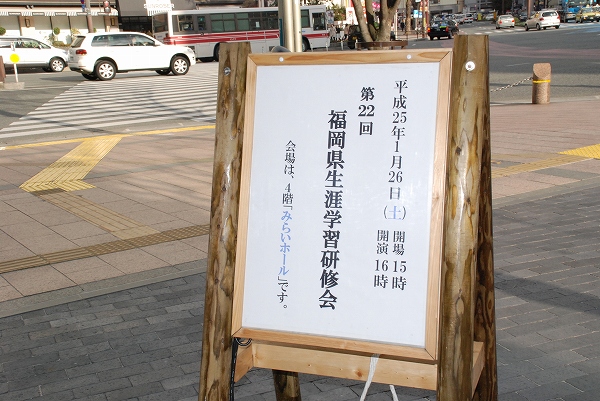 平成25年1月26日(土) 開場 15時
開演 16時
第22回
福岡県生涯学習研修会
会場は、4階「みらいホール」です。